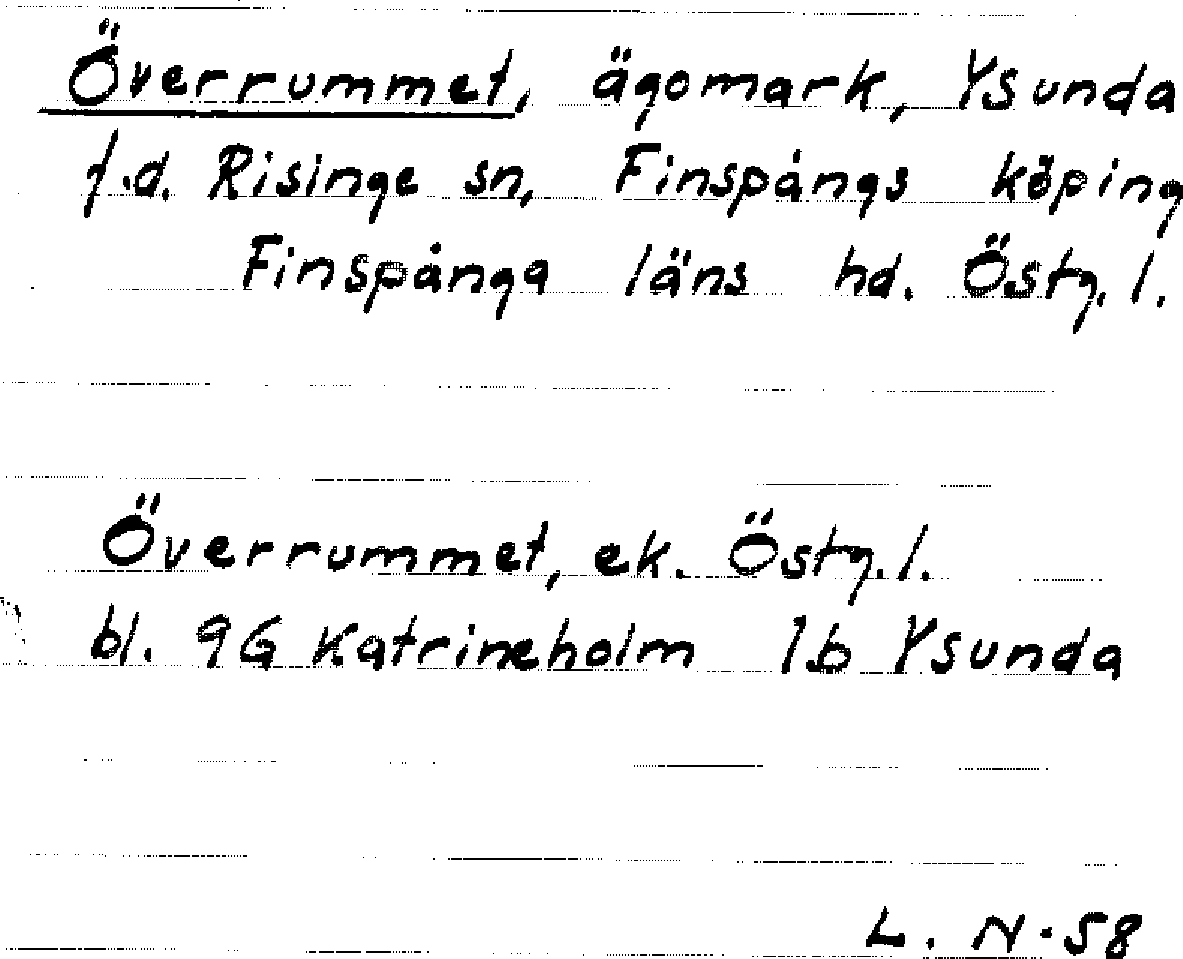 Överrummet, ägomark, Ysunda
f.d. Risinge sn, Finspångs köping
Finspånga läns hd. Östg. l.
Överrummet, ek. Östg. l.
bl. 9G Katrineholm 1b Ysunda
L. N-58